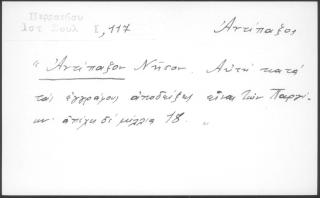 Περραιβού
Ιστ Σουλ Ι, 117
Ἀντίπαξος
"Ἀντίπαξον Νῆσον. Αὕτη κατὰ
τὰς ἐγγράφους ἀποδείξεις εἶναι τῶν Παργί-
ων· ἀπέχει δὲ μίλλια 18. "